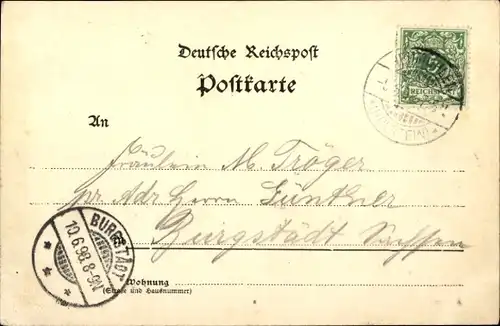 Deutsche Reichspost
Postkarte
An
Fräulein M. Tröger
pr. Adr Herrn Günther
Burgstädt Sachsen
Wohnung
(Straße und Hausnummer)
BURGSTÄDT
10.6.98.8-9V.
REICHSPOST